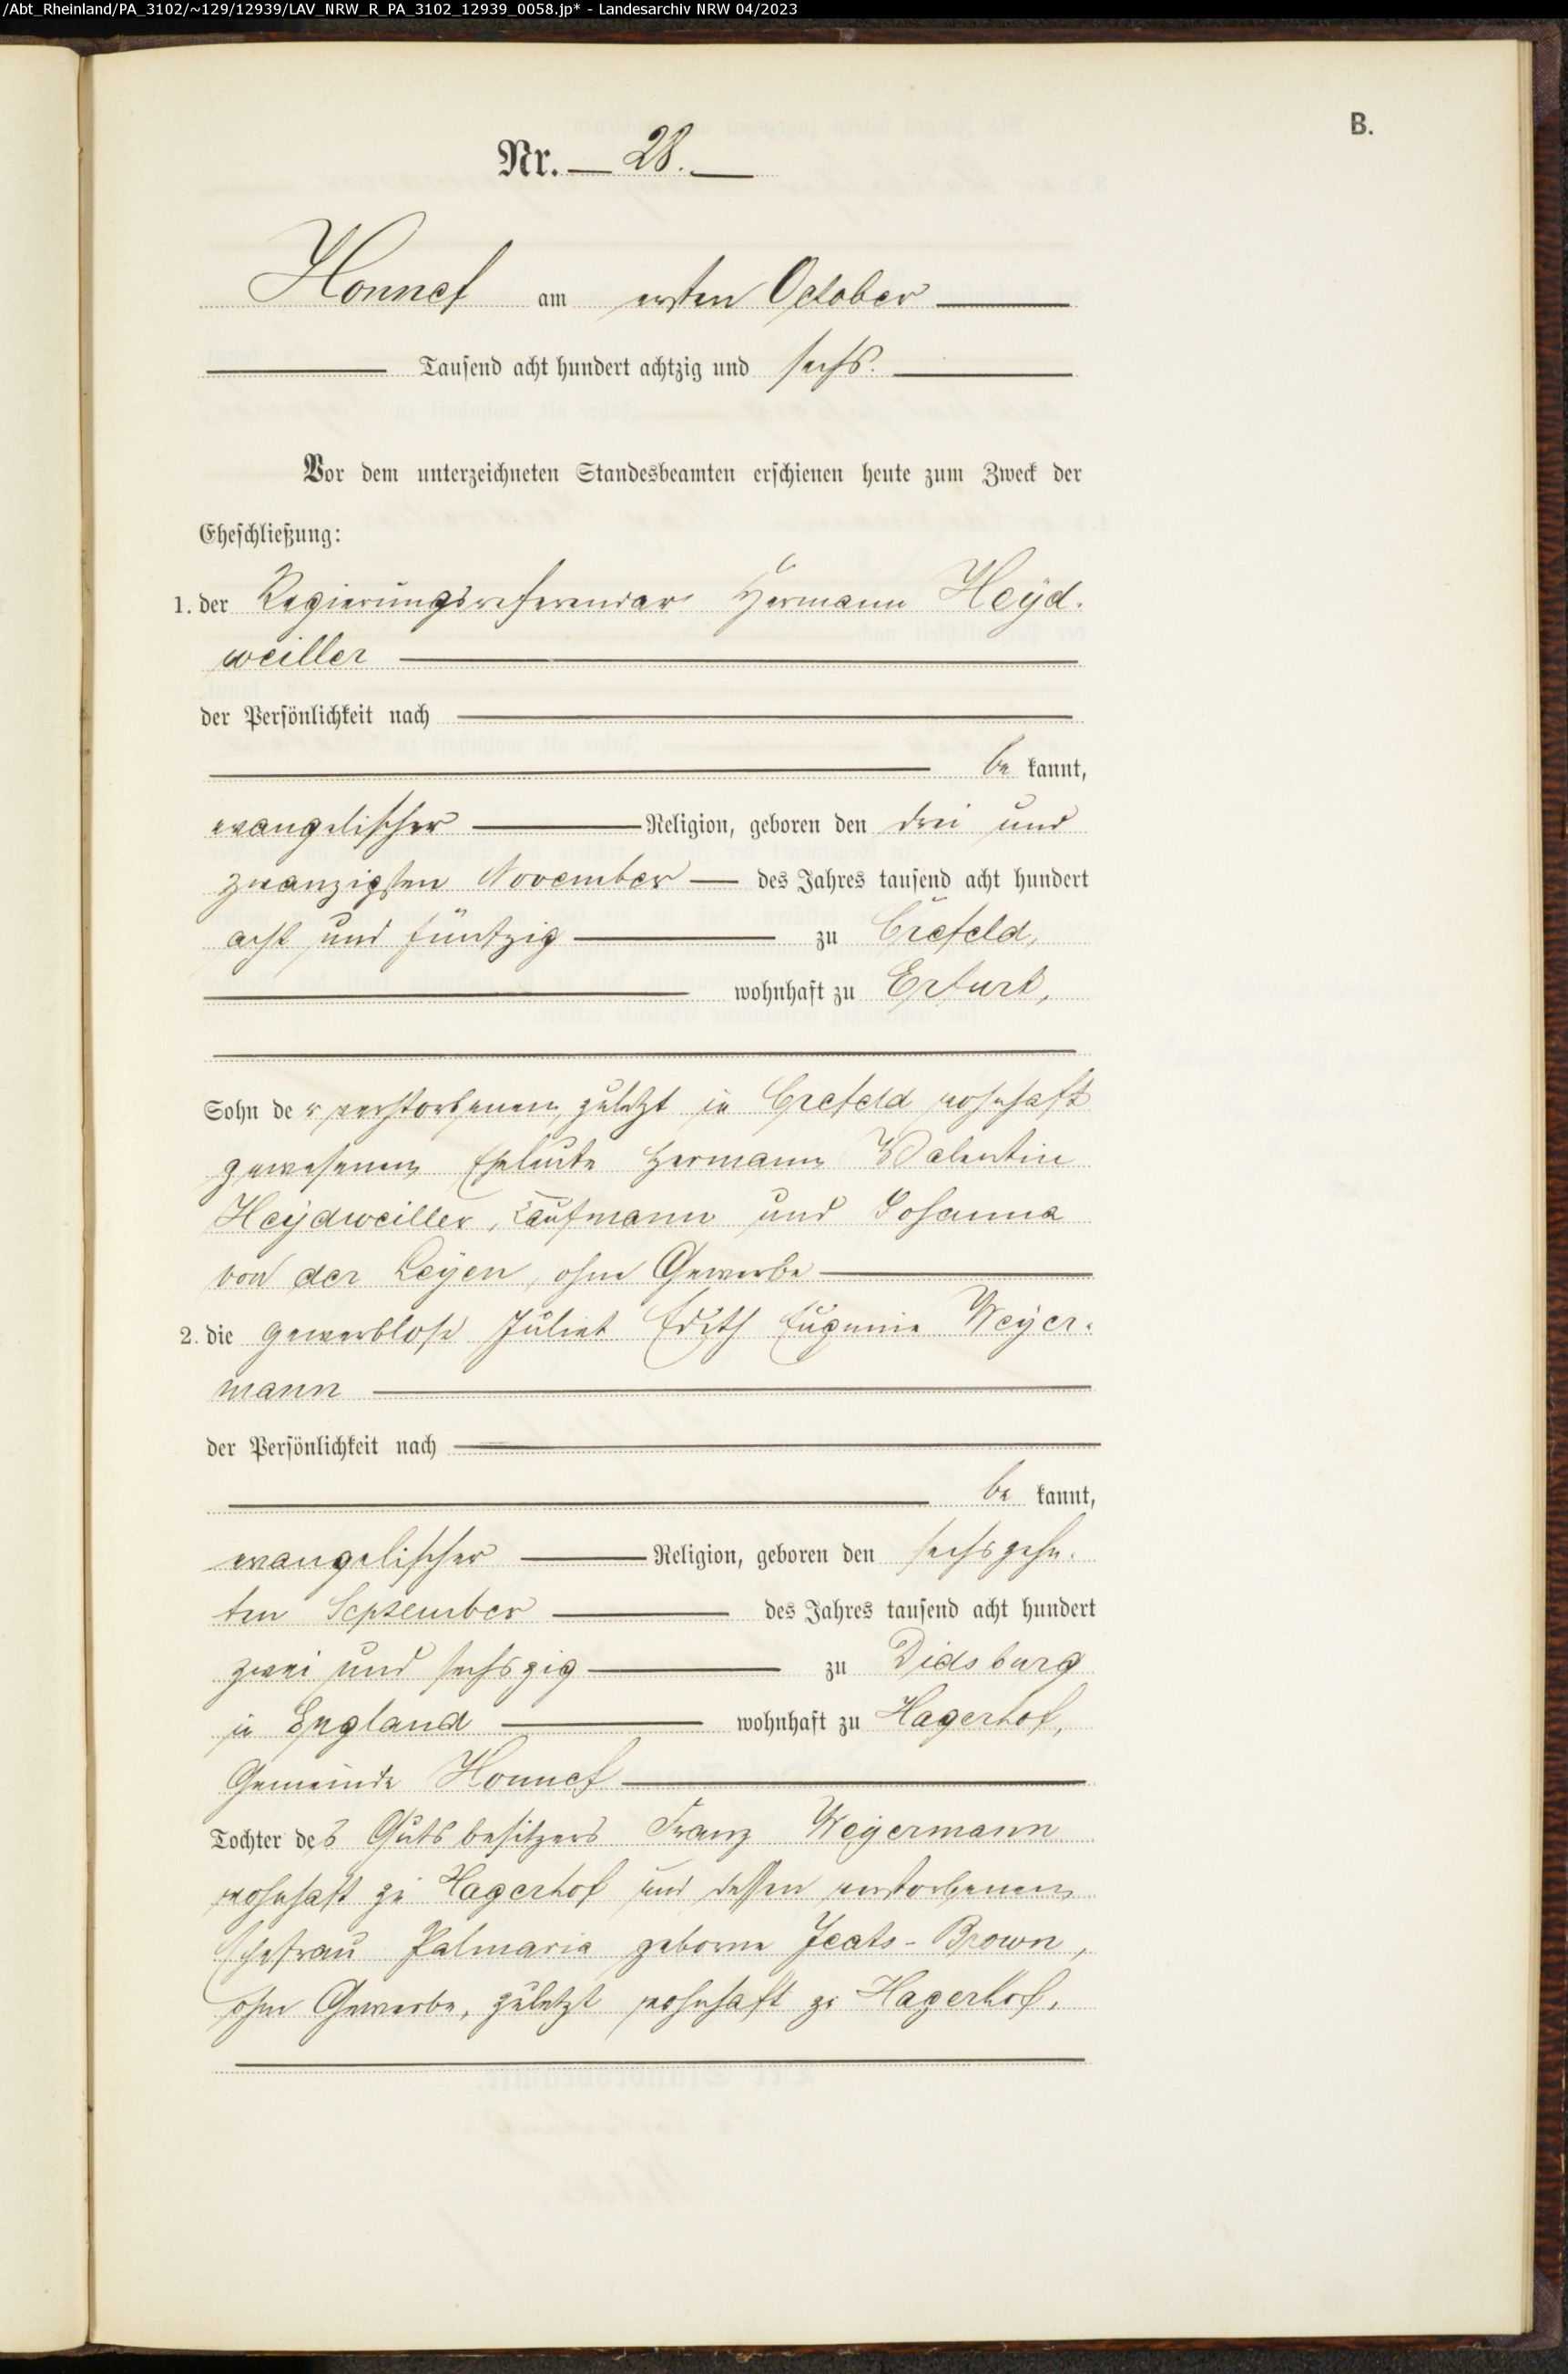 /Abt_Rheinland/PA_3102/~129/12939/LAV_NRW_R_PA_3102_12939_0058.jp* - Landesarchiv NRW 04/2023
B.
Nr. 28.
Honnef am ersten October
Tausend acht hundert achtzig und sechs.
Vor dem unterzeichneten Standesbeamten erschienen heute zum Zweck der
Eheschließung:
1. der Regierungsreferendar Hermann Heyd-
weiller
der Persönlichkeit nach
be kannt,
evangelischer Religion, geboren den drei und
zwanzigsten November des Jahres tausend acht hundert
acht und fünfzig zu Crefeld,
wohnhaft zu Erfurt,
Sohn der verstorbenen, zuletzt in Crefeld wohnhaft
gewesenen Eheleute Hermann Valentin
Heydweiller, Kaufmann und Johanna
von der Leyen, ohne Gewerbe
2. die gewerblose Juliet Edith Eugenie Weyer-
mann
der Persönlichkeit nach
be kannt,
evangelischer Religion, geboren den sechszehn-
ten September des Jahres tausend acht hundert
zwei und sechszig zu Didsburg
in England wohnhaft zu Hagerhof,
Gemeinde Honnef
Tochter des Gutsbesitzers Franz Weyermann
wohnhaft zu Hagerhof und dessen verstorbenen
Ehefrau Palmaria geborne Yeats-Brown,
ohne Gewerbe, zuletzt wohnhaft zu Hagerhof,